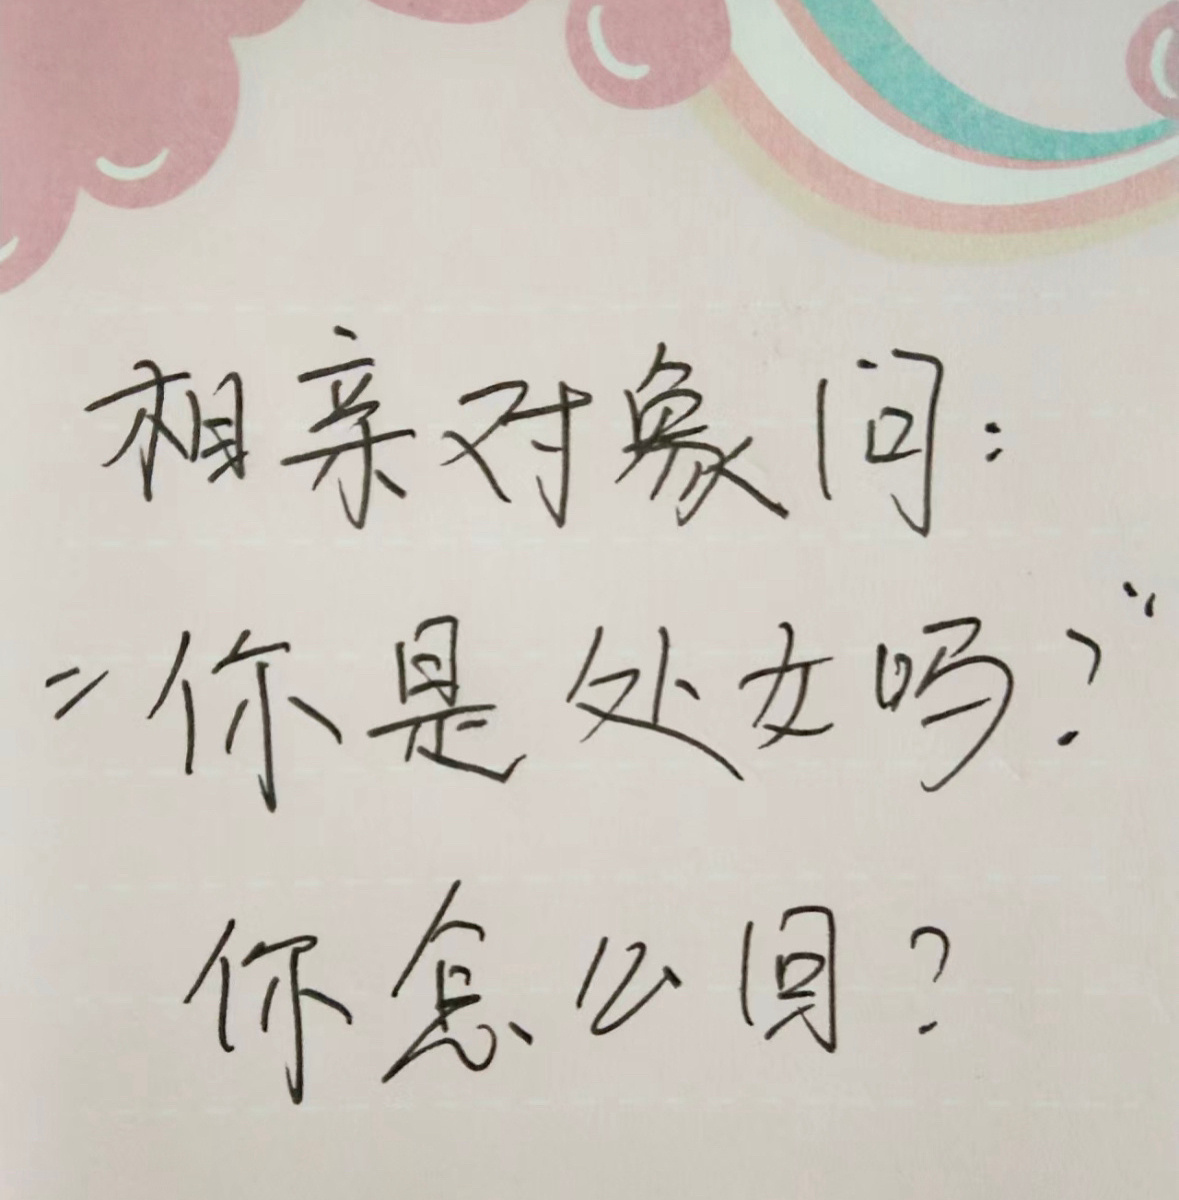 相亲对象问:
"你是处女吗?"
你怎么回?